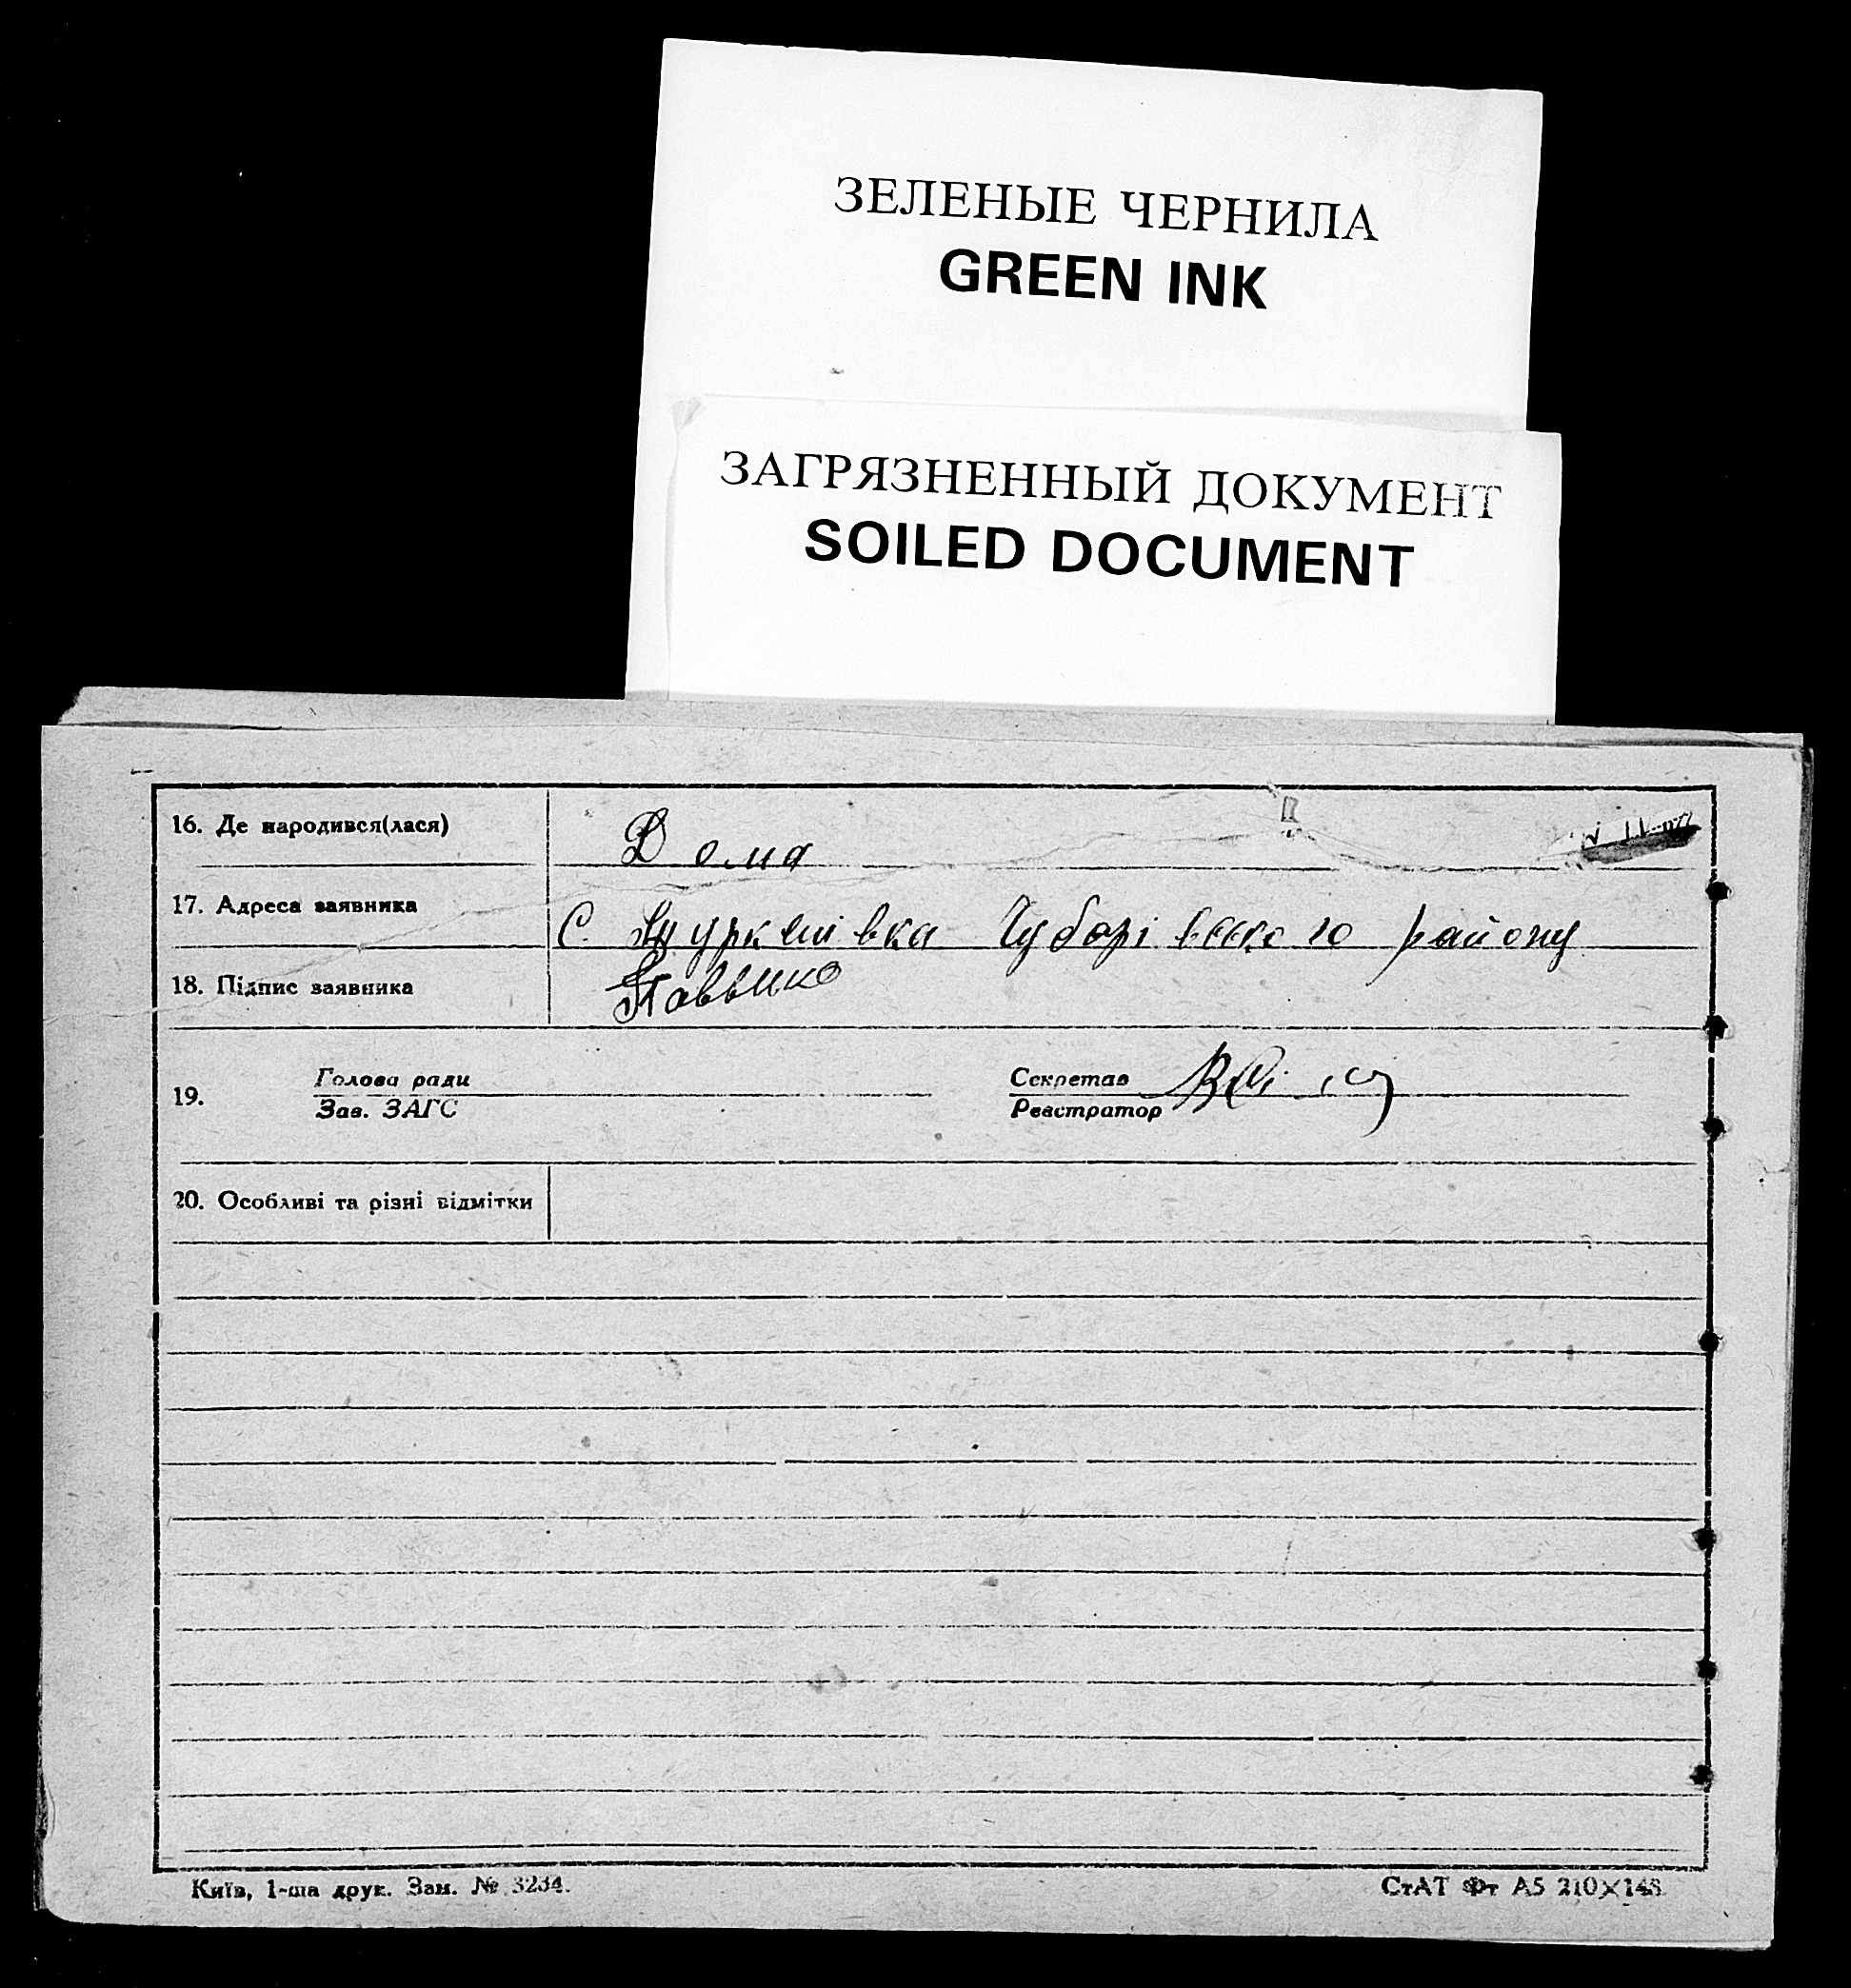 ЗЕЛЕНЫЕ ЧЕРНИЛА
GREEN INK
ЗАГРЯЗНЕННЫЙ ДОКУМЕНТ
SOILED DOCUMENT
16. Де народився(лася) Дома
17. Адреса заявника С. району
18. Підпис заявника
Голова ради Секретар
19.
Зав. ЗАГС Реєстратор
20. Особливі та різні відмітки
Київ, 1-ша друк. Зам. № 3234. СтАТ Фт А5 210×148